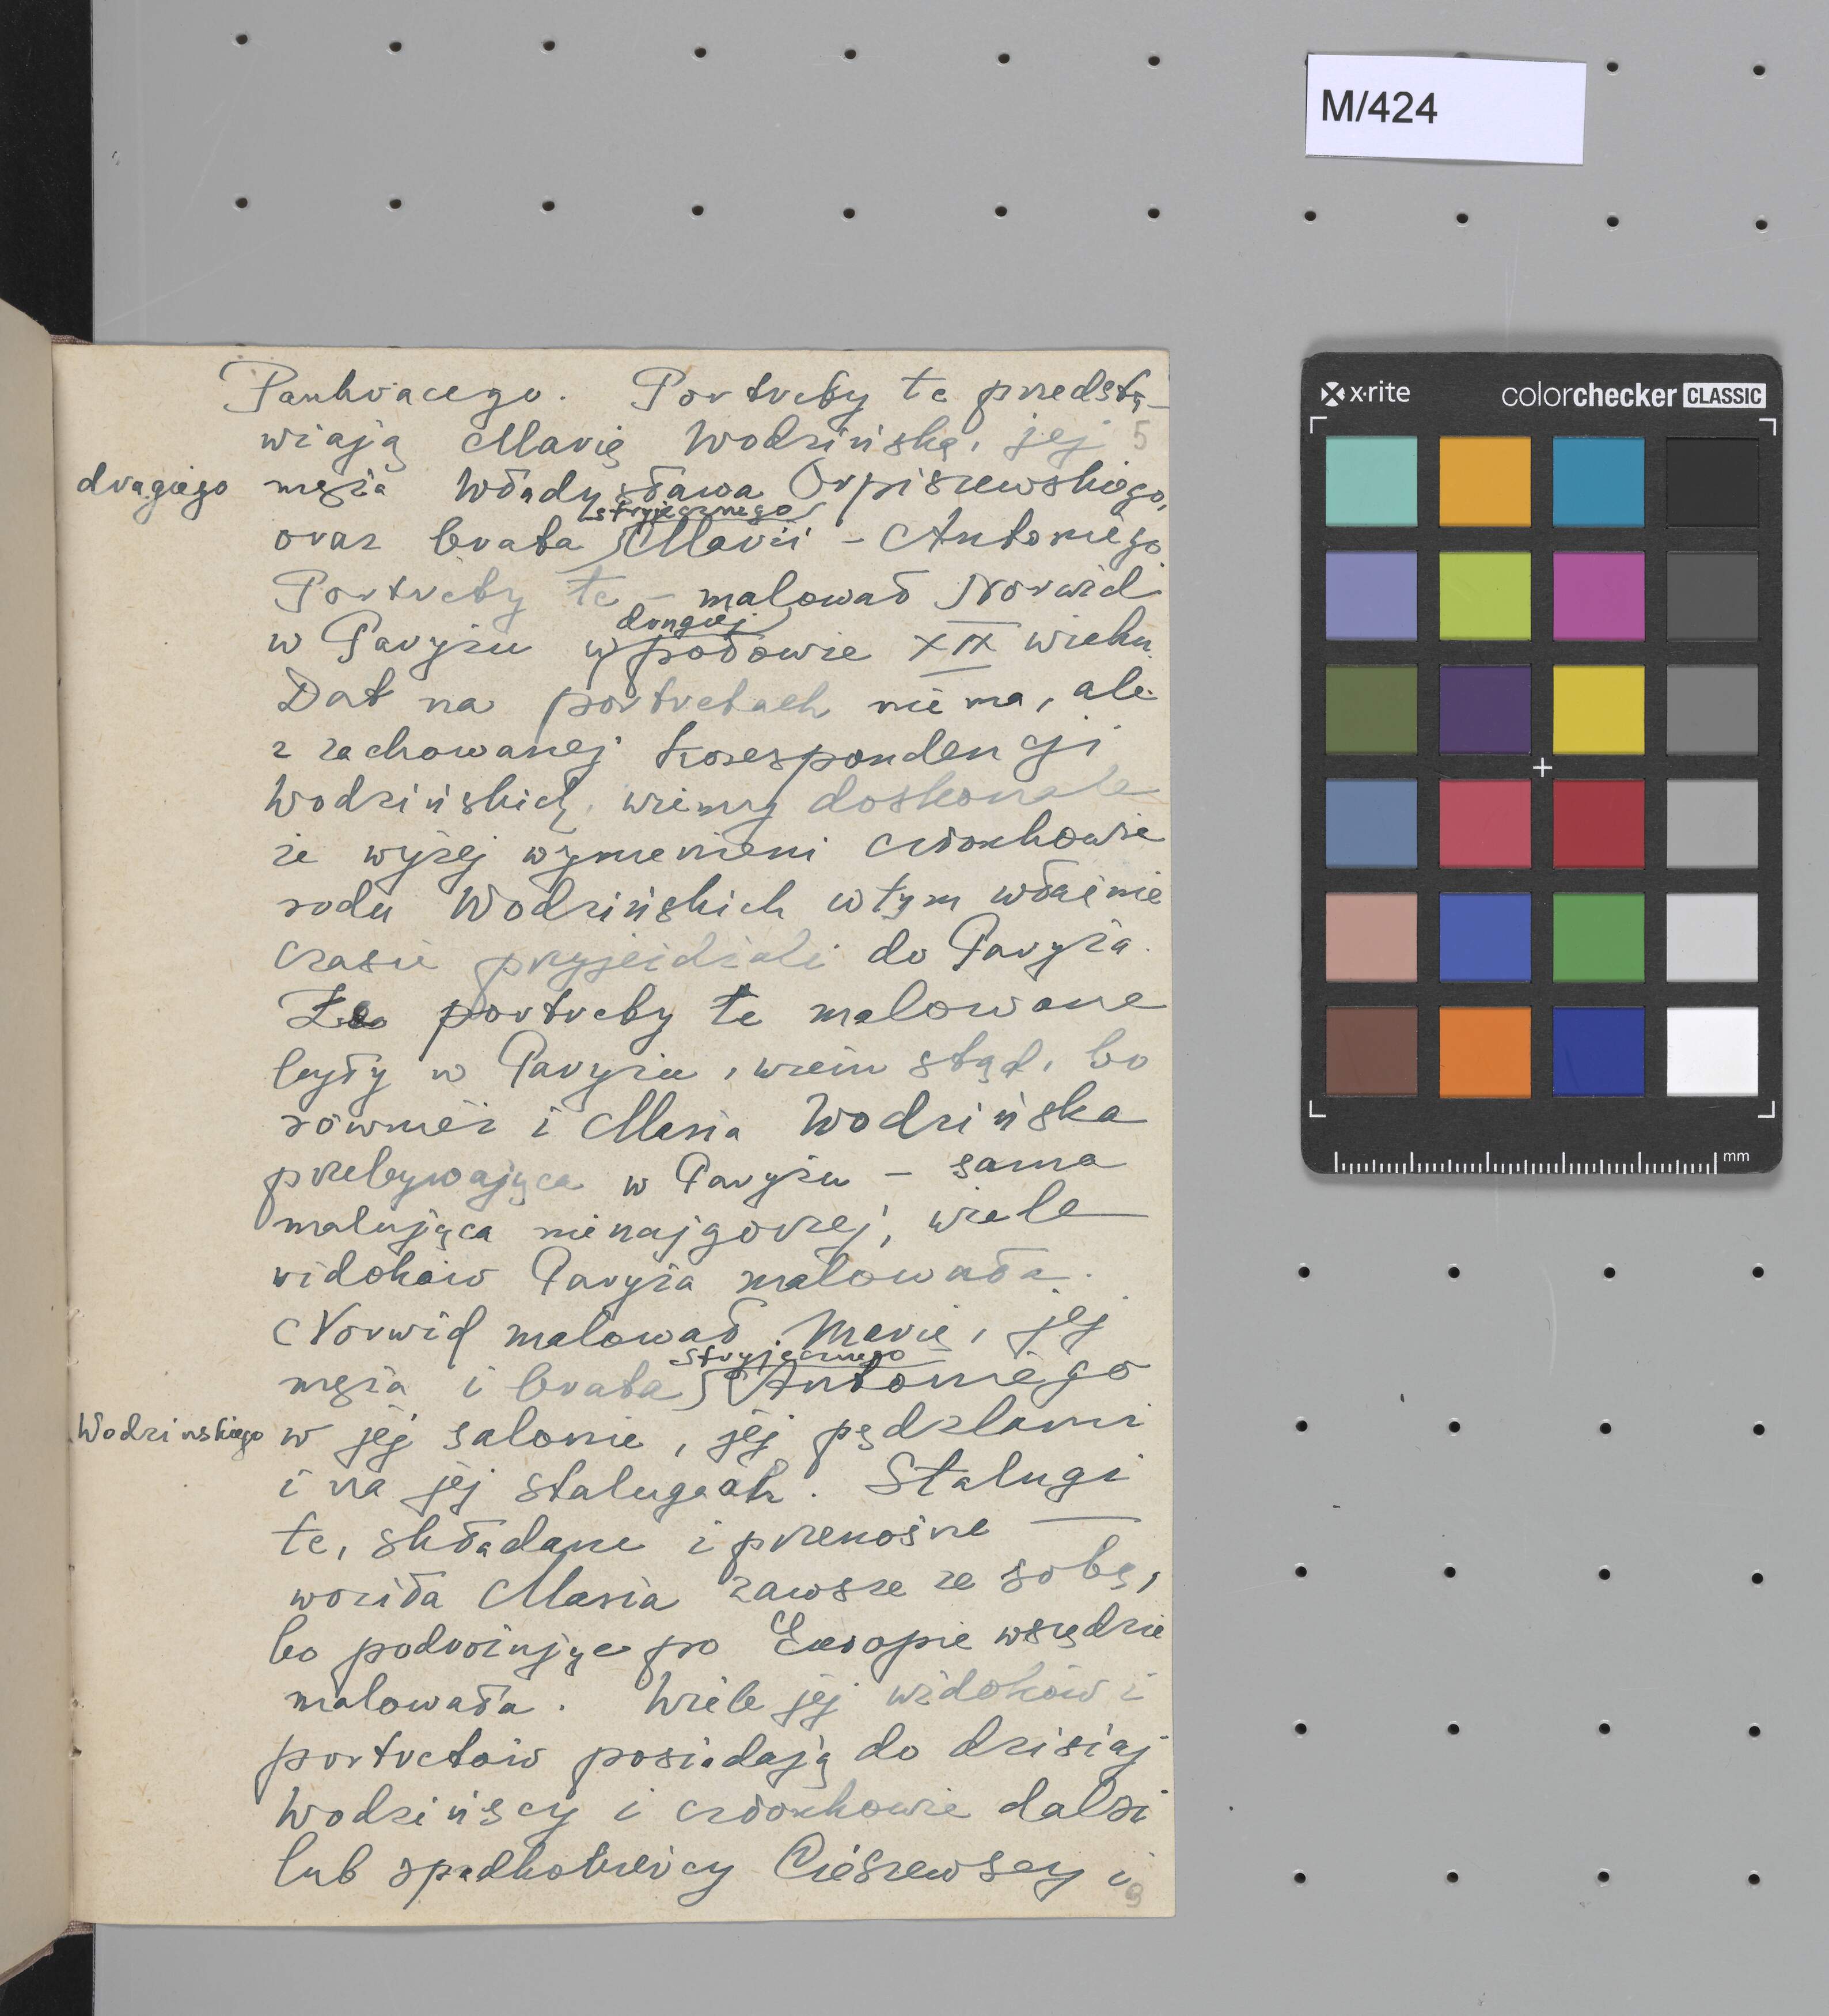 M/424
x·rite
colorchecker CLASSIC
mm
Pankracego. Portrety te przedsta-
wiają Marię Wodzińską, jej 5
drugiego męża Władysława Orpiszewskiego,
oraz brata stryjecznego Marii – Antoniego
Portrety te – malował Norwid
w Paryżu w drugiej połowie XIX wieku.
Dat na portretach nie ma, ale
z zachowanej korespondencji
Wodzińskich, wiemy doskonale
że wyżej wymienieni członkowie
rodu Wodzińskich w tym właśnie
czasie przyjeżdżali do Paryża.
Że portrety te malowane
były w Paryżu, wiem stąd, bo
również i Maria Wodzińska
przebywająca w Paryżu – sama
malująca nienajgorzej, wiele
widoków Paryża malowała.
Norwid malował Marię, jej
męża i brata stryjecznego Antoniego
Wodzinskiego w jej salonie, jej pędzlami
i na jej stalugach. Stalugi
te, składane i przenośne —
woziła Maria zawsze ze sobą,
bo podróżując po Europie wszędzie
malowała. Wiele jej widoków i
portretów posiadają do dzisiaj
Wodzińscy i członkowie dalsi
lub spadkobiercy Cieszewscy i
9